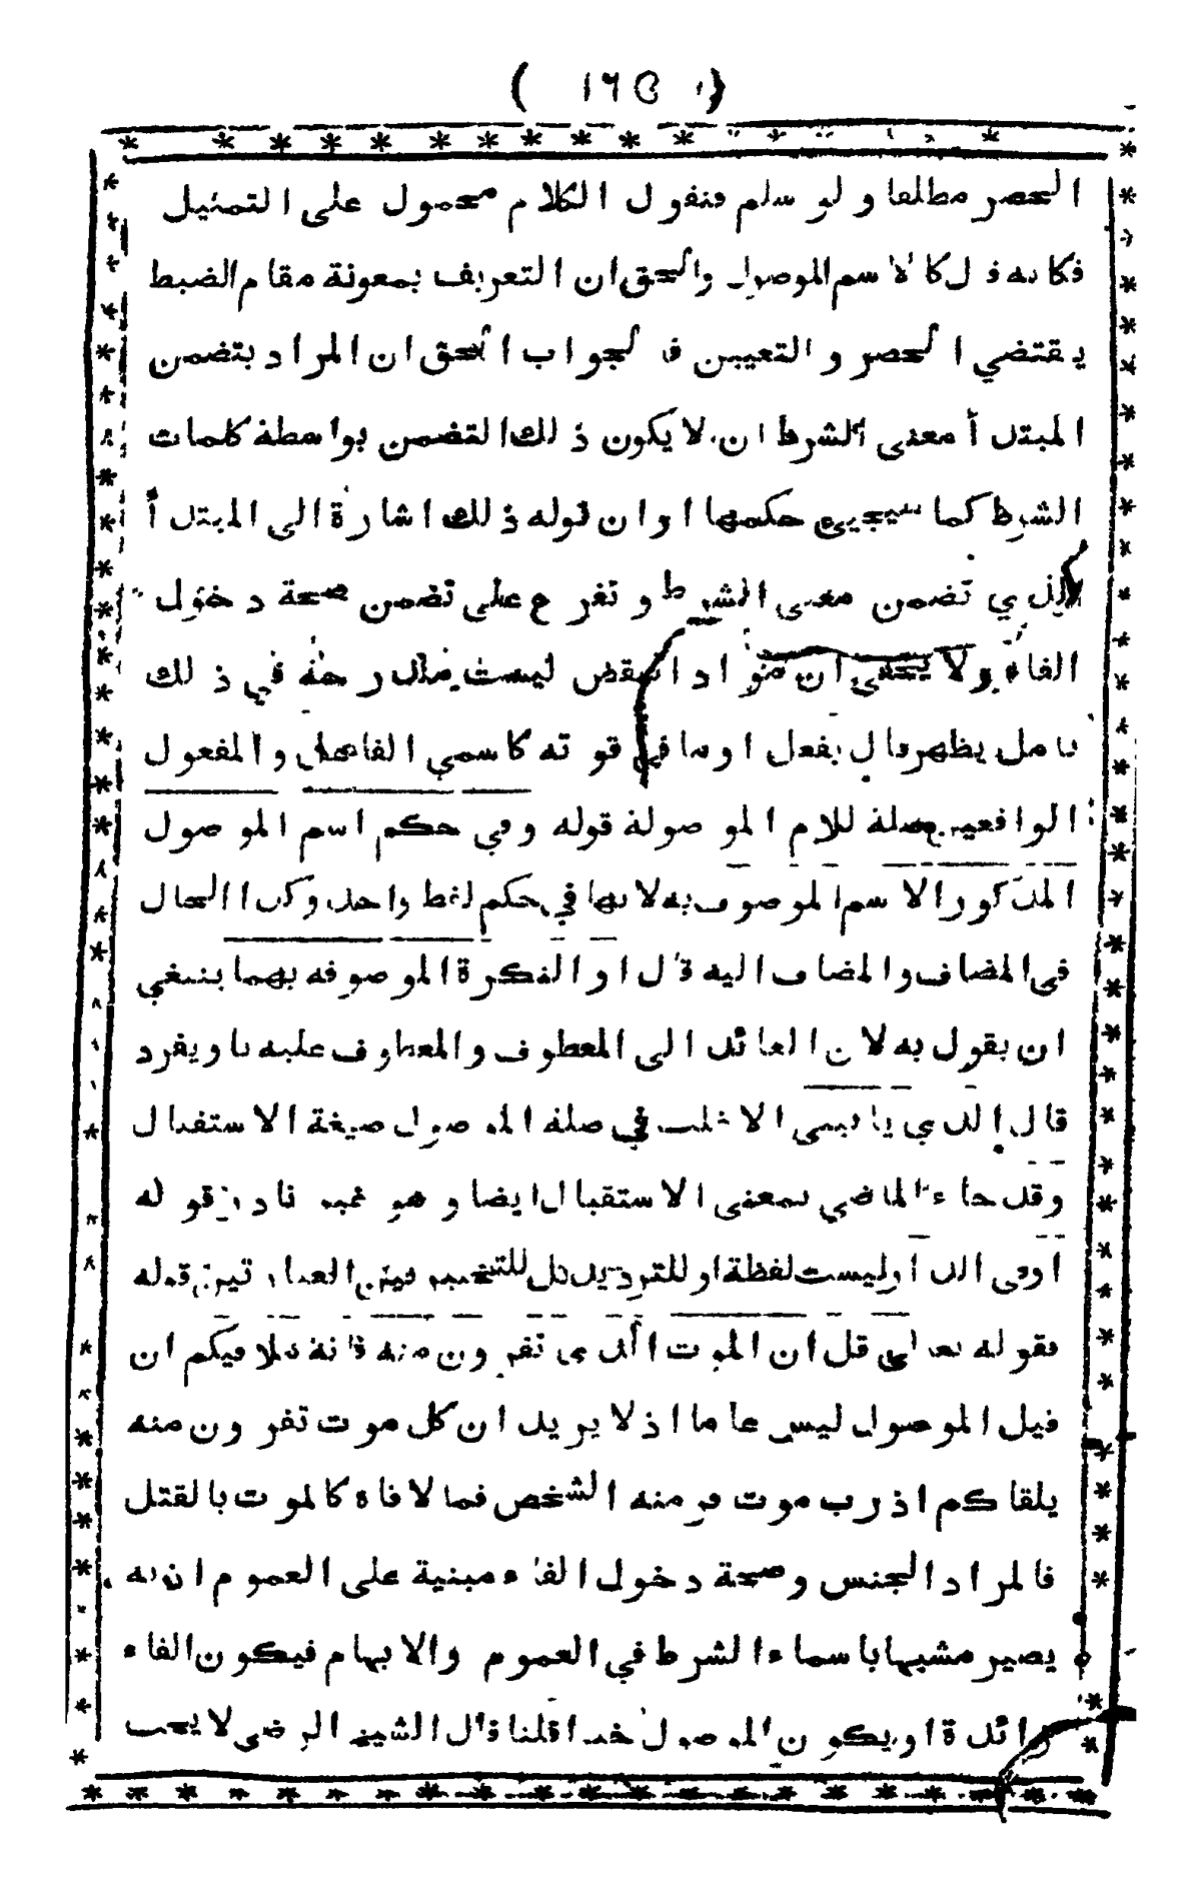 ( ١٦٥ )
الحصر مطلقا ولو سلم فنقول الكلام محمول على التمثيل
فكانه قال كالاسم الموصول والحق ان التعريف بمعونة مقام الضبط
يقتضي الحصر والتعيين فالجواب الحق ان المراد بتضمن
المبتدأ معنى الشرط ان لا يكون ذلك التضمن بواسطة كلمات
الشرط كما سيجيئ حكمها او ان قوله ذلك اشارة الى المبتدأ
الذي تضمن معنى الشرط وتفرع على تضمن صحة دخول
الفاء ولا يخفى ان مواد النقض ليست مندرجة في ذلك
تامل يظهر قال بفعل او ما في قوته كاسمي الفاعل والمفعول
الواقعين صلة للام الموصولة قوله وفي حكم اسم الموصول
المذكور الاسم الموصوف به لانها في حكم لفظ واحد وكذا الحال
في المضاف والمضاف اليه قال او النكرة الموصوفة بهما ينبغي
ان يقول به لان العائد الى المعطوف والمعطوف عليه باو يفرد
قال الذي ياتيني الاغلب في صلة الموصول صيغة الاستقبال
وقد جاء الماضي بمعنى الاستقبال ايضا وهو غير نادر قوله
او في الدار وليست لفظة او للترديد بل للتخيير فيتزن العبارتين قوله
فقوله تعالى قل ان الموت الذي تفرون منه فانه ملاقيكم ان
قيل الموصول ليس عاما اذ لا يريد ان كل موت تفرون منه
يلقاكم اذ رب موت فر منه الشخص فما لاقاه كالموت بالقتل
فالمراد الجنس وصحة دخول الفاء مبنية على العموم اذ به
يصير مشبها باسماء الشرط في العموم والابهام فيكون الفاء
زائدة او يكون الموصول قلنا قال الشيخ الرضي لا يجب